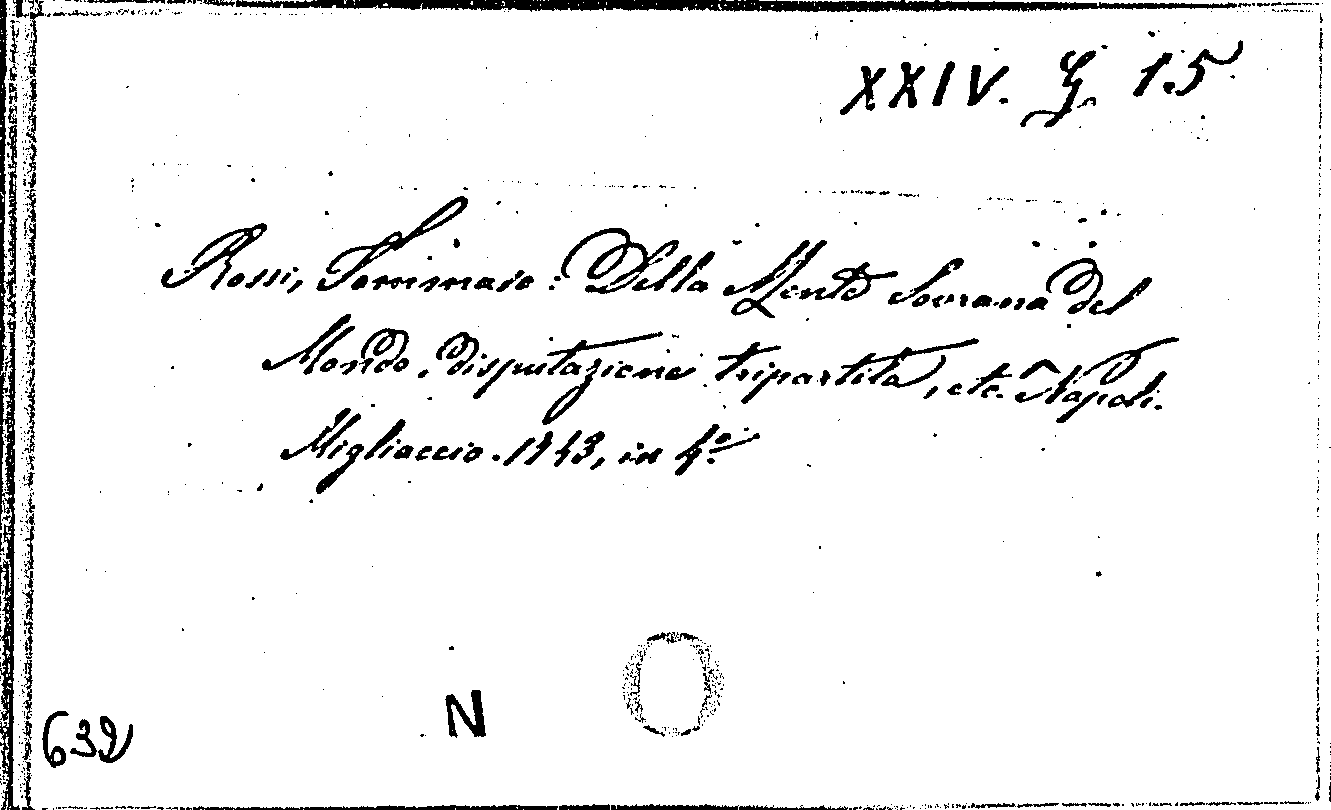 XXIV. G. 15
Rossi, Tommaso: Della Mente Sovrana del
Mondo, disputazione tripartita, etc. Napoli.
Migliaccio. 1743, in 4.º
N
632